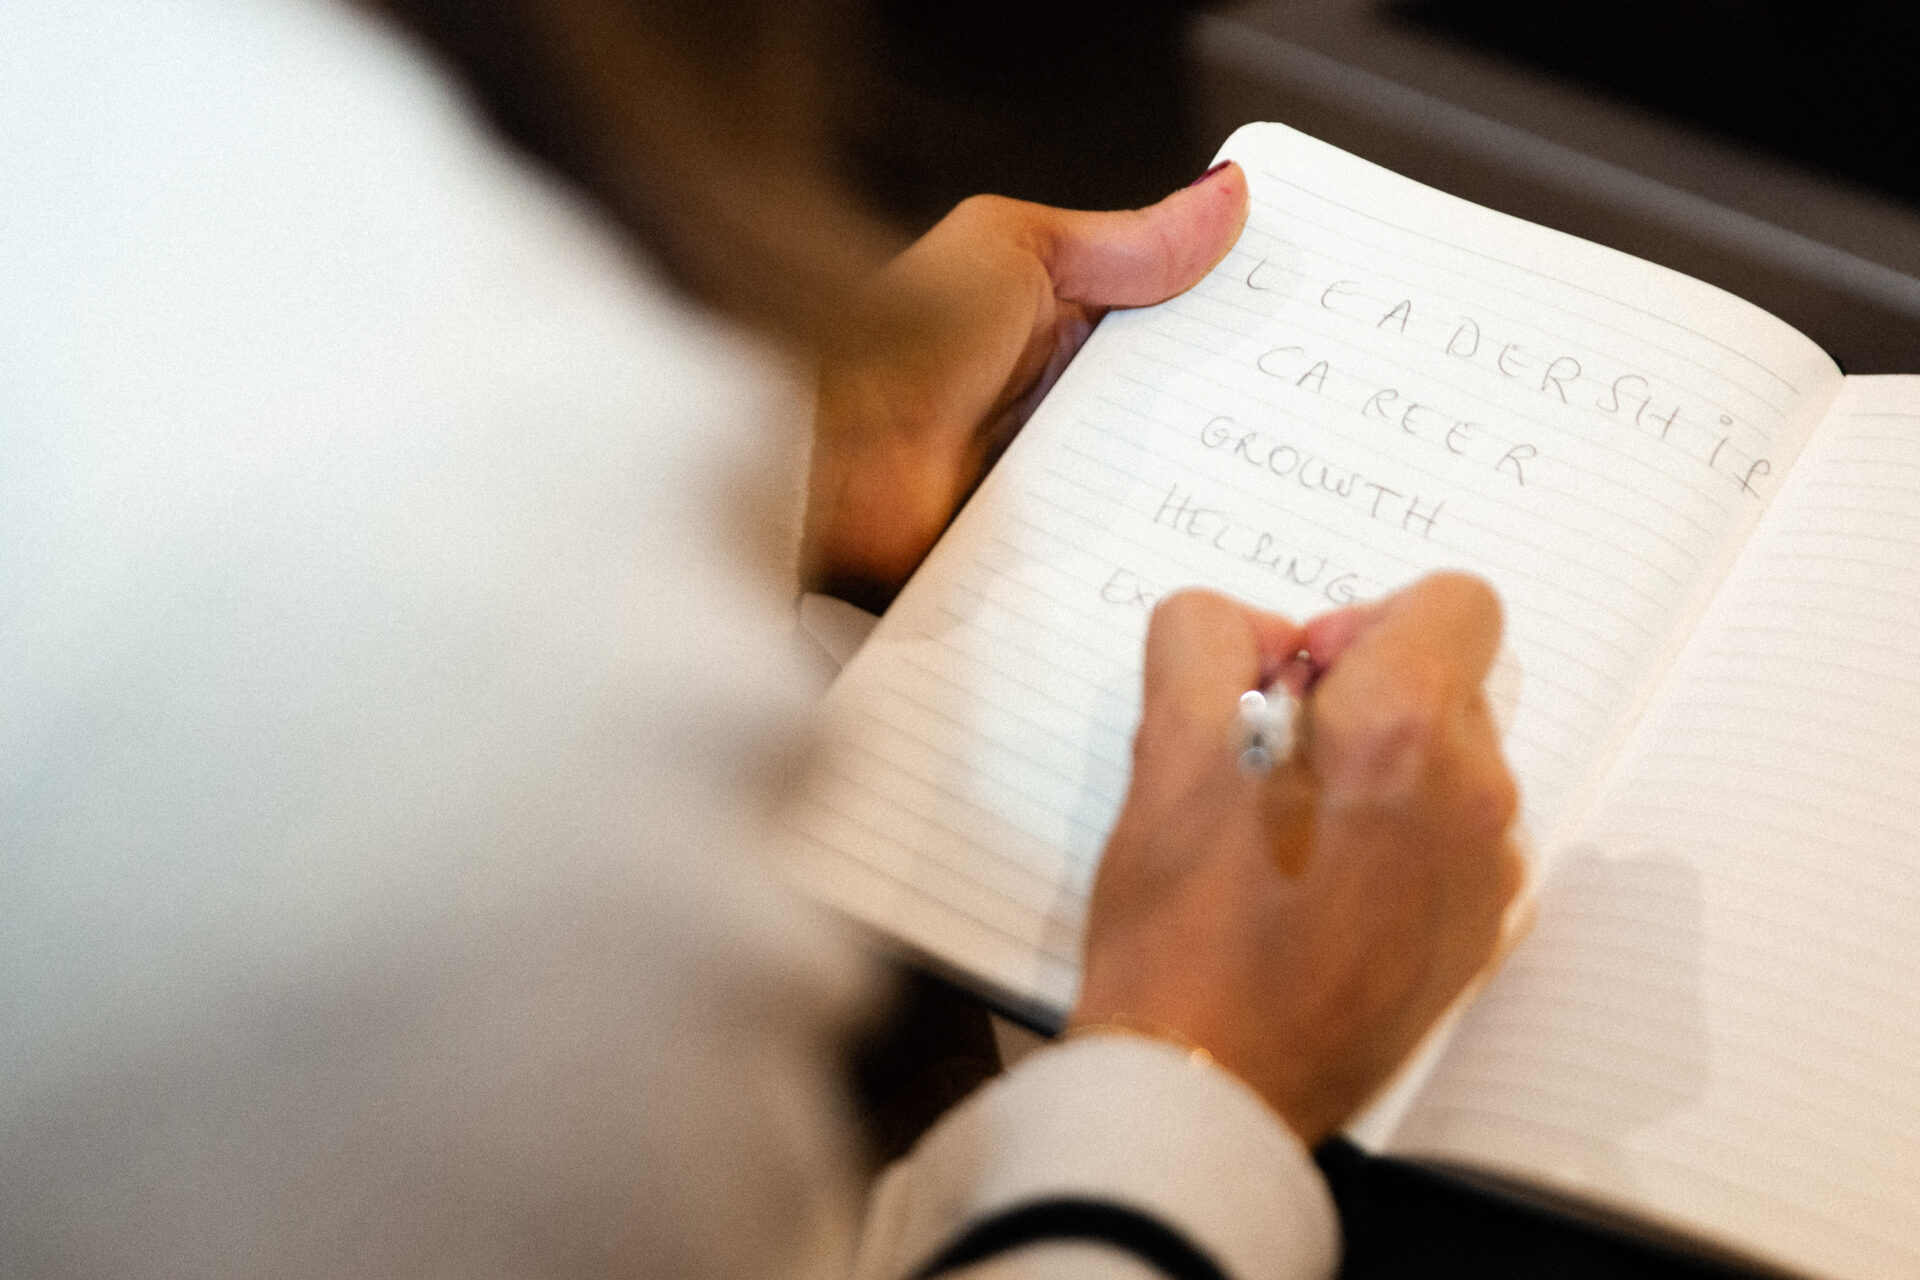 LEADERSHiP
CAREER
GROWTH
HELPING
EX